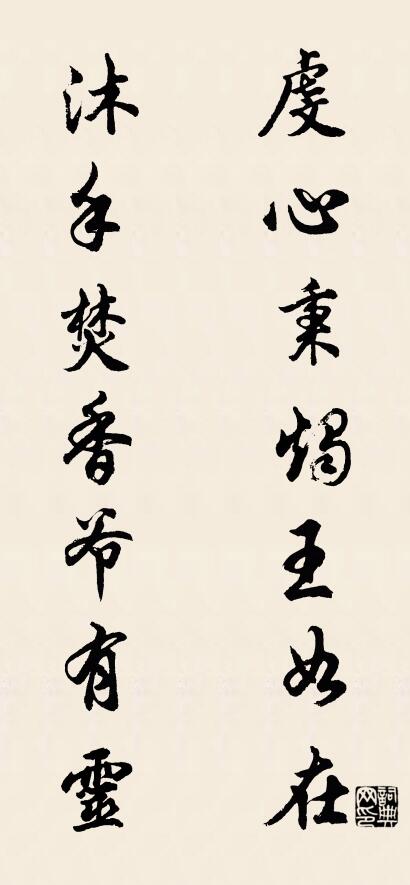 虔心秉烛王如在
沐手焚香爷有靈
詞典网印